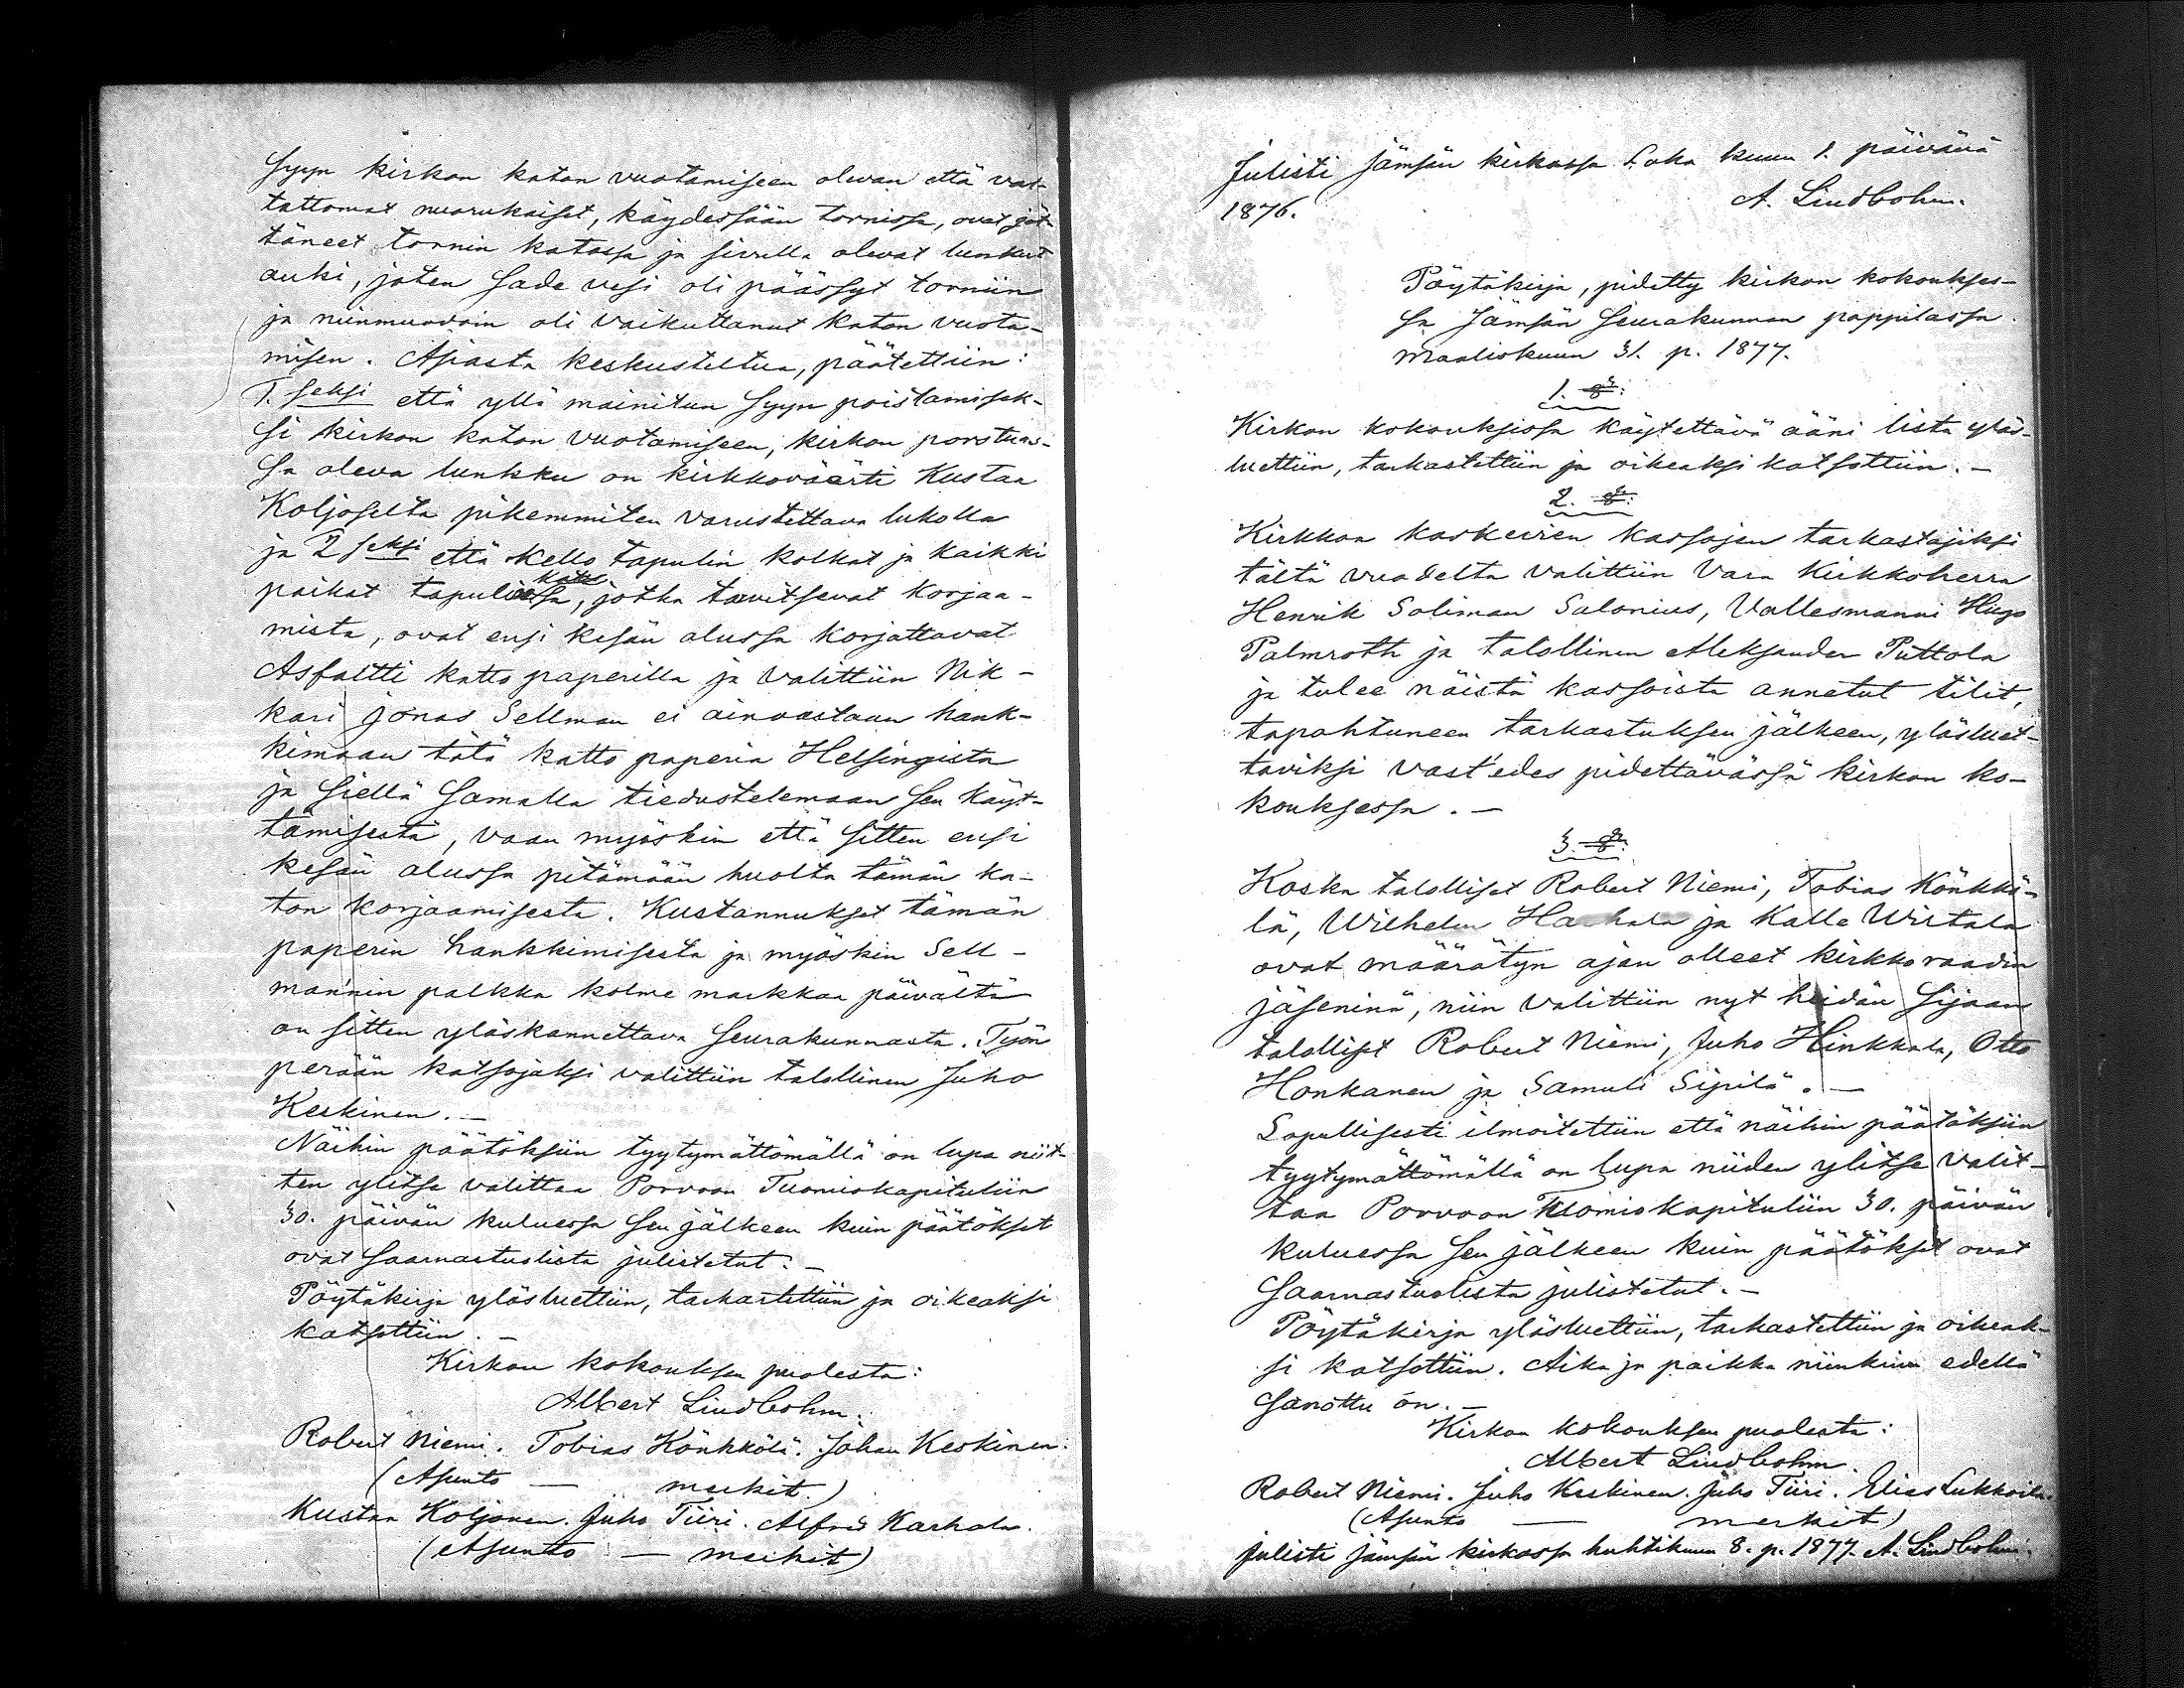 Syyn kirkon katon vuotamiseen olevan että vas-
tattomat nuorukaiset, käydessään tornissa, ovat jät-
täneet tornin katossa ja sivulla olevat lunkut
auki, joten Sade vesi oli päässyt torniin
ja niinmuodoin oli vaikuttanut katon vuota-
misen. Asiasta keskusteltua, päätettiin:
1. seksi että yllä mainitun Syyn poistamisek-
si kirkon katon vuotamiseen, kirkon porstuas-
sa oleva lunkku on kirkkoväärti Kustaa
Koljoselta pikemmiten varustettava lukolla
ja 2 seksi että kello tapulin kolkat ja kaikki
paikat tapulissa, jotka tarvitsevat korjaa-
mista, ovat ensi kesän alussa korjattavat
Asfaltti katto paperilla ja valittiin Nik-
kari Jonas Sellman ei ainoastaan hank-
kimaan tätä katto paperia Helsingista
ja siellä samalla tiedustelemaan sen käyt-
tämisestä, vaan myöskin että sitten ensi
kesän alussa pitämään huolta tämän ka-
ton korjaamisesta. Kustannukset tämän
paperin hankkimisesta ja myöskin Sell-
mannin palkka kolme markkaa päivältä
on sitten yläskannettava Seurakunnasta. Työn
perään katsojaksi valittiin talollinen Juho
Keskinen. —
Näihin päätöksiin tyytymättömällä on lupa niit-
ten ylitse valittaa Porvoon Tuomiokapituliin
30. päivän kuluessa sen jälkeen kuin päätökset
ovat Saarnastuolista julistetut. —
Pöytäkirja yläsluettiin, tarkastettiin ja oikeaksi
katsottiin. —
Kirkon kokouksen puolesta:
Albert Lindbohm.
Robert Niemi. Tobias Könkkölä. Johan Keskinen.
(Asunto — merkit.)
Kustaa Koljonen. Juho Tiiri. Alfred Karhala.
(Asunto — merkit)
Julisti Jämsän kirkossa Loka kuun 1. päivänä
1876. A. Lindbohm.
Pöytäkirja, pidetty kirkon kokoukses-
sa Jämsän Seurakunnan pappilassa
Maaliskuun 31. p. 1877.
1. §:
Kirkon kokouksissa käytettävä ääni lista yläs-
luettiin, tarkastettiin ja oikeaksi katsottiin. —
2. §:
Kirkkon kaskeirien kassojen tarkastajiksi
tältä vuodelta valittiin Vara Kirkkoherra
Henrik Soliman Salonius, Vallesmanni Hugo
Palmroth ja talollinen Aleksander Puttola
ja tulee näistä kassoista annetut tilit,
tapahtuneen tarkastuksen jälkeen, yläsluet-
taviksi vast'edes pidettävässä kirkon ko-
kouksessa. —
3. §:
Koska talolliset Robert Niemi, Tobias Könkkö-
lä, Wilhelm Harkala ja Kalle Wirtala
ovat määrätyn ajan olleet kirkkoraadin
jäseninä, niin valittiin nyt heidän sijaan
talolliset Robert Niemi, Juho Hinkkala, Otto
Honkanen ja Samuli Sipilä. —
Lopullisesti ilmoitettiin että näihin päätöksiin
tyytymättömällä on lupa niiden ylitse valit-
taa Porvoon Tuomiokapituliin 30. päivän
kuluessa sen jälkeen kuin päätökset ovat
Saarnastuolista julistetut. —
Pöytäkirja yläsluettiin, tarkastettiin ja oikeak-
si katsottiin. Aika ja paikka niinkuin edellä
Sanottu on. —
Kirkon kokouksen puolesta:
Albert Lindbohm.
Robert Niemi. Juho Keskinen. Juho Tiiri. Elias Lukkoila.
(Asunto — merkit)
Julisti Jämsän kirkossa huhtikuun 8. p. 1877. A. Lindbohm.